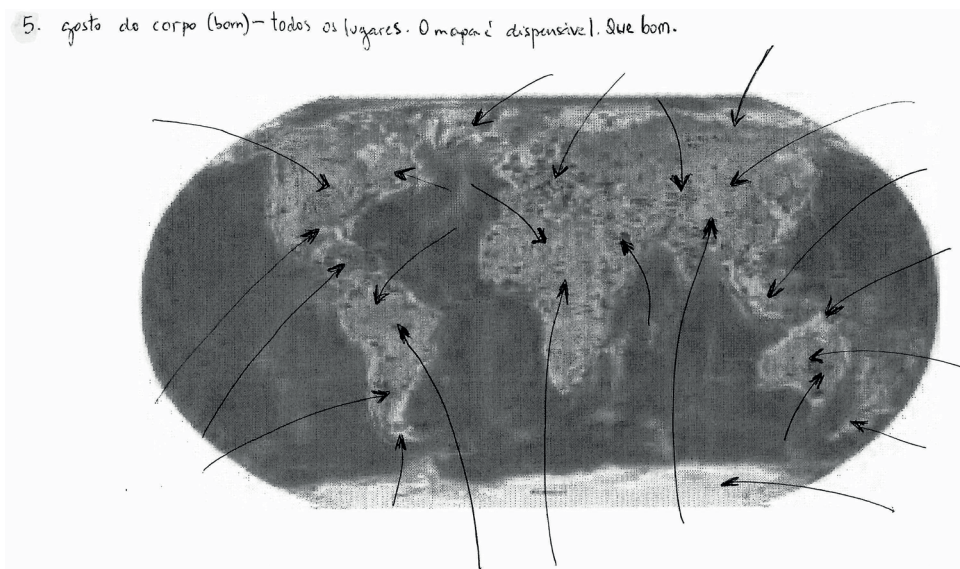 5. gosto do corpo (bom) – todos os lugares. O mapa é dispensável. Que bom.